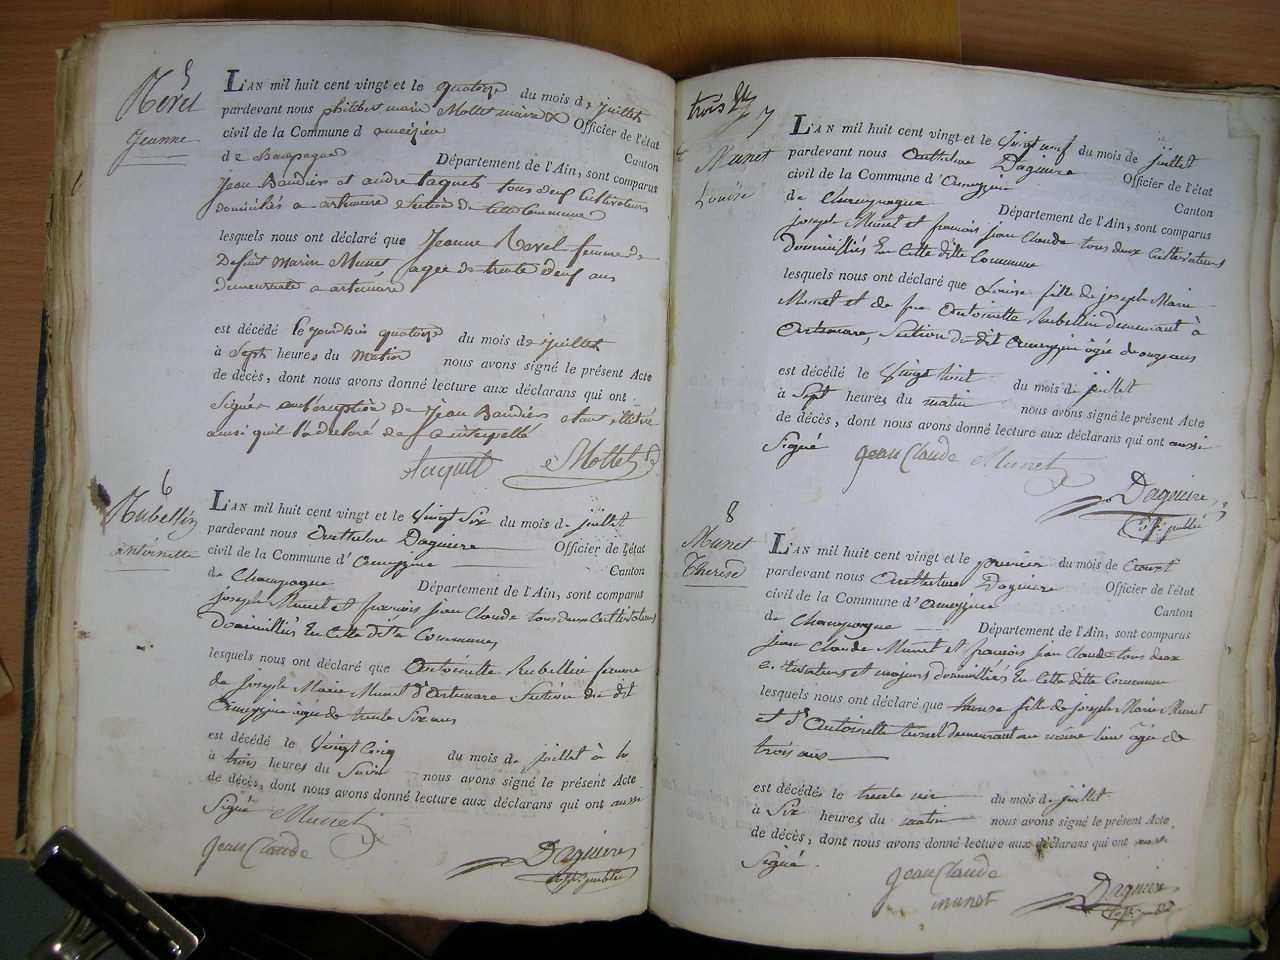 5
Revel
Jeanne
L'AN mil huit cent vingt et le quatorze du mois de juillet
pardevant nous philibert marie Mollet maire Officier de l'état
civil de la Commune d ameizieu Canton
de Champagne Département de l'Ain, sont comparus
Jean Baudier et andre taquet tous deux Cultivateurs
domiciliés a artemare section de cette Commune
lesquels nous ont déclaré que Jeanne Revel femme de
Defunt Marin Munet, agée de trente deux ans
demeurante a artemare
est décédé le jourdhui quatorze du mois de juillet
à Sept heures du matin nous avons signé le présent Acte
de décès, dont nous avons donné lecture aux déclarans qui ont
Signé a de Jean Baudier
ainsi quil l'a declaré de ce interpellé
Mollet
6
Rubellin
antoinette
L'AN mil huit cent vingt et le vingt Six du mois de juillet
pardevant nous Anthelme Daguiere Officier de l'état
civil de la Commune d' Ameyzieu Canton
de Champagne Département de l'Ain, sont comparus
joseph Munet et francois jean Claude tous deux Cultivateurs
Domiciliés En Cette ditte Commune
lesquels nous ont déclaré que Antoinette Rubellin femme
de joseph Marie Munet d'Artemare Section du dit
Ameyzieu agée de trente Six ans
est décédé le vingt Cinq du mois de juillet à
à trois heures du Soir nous avons signé le présent Acte
de décès, dont nous avons donné lecture aux déclarans qui ont aussi
Signé Munet
jean Claude
Daguiere
trois
7
Munet
Louise
L'AN mil huit cent vingt et le vingt neuf du mois de juillet
pardevant nous Anthelme Daguiere Officier de l'état
civil de la Commune d' Ameyzieu Canton
de Champagne Département de l'Ain, sont comparus
joseph Munet et francois jean Claude tous deux Cultivateurs
Domiciliés En Cette ditte Commune
lesquels nous ont déclaré que Louise fille de joseph Marie
Munet et de feue Antoinette Rubellin demeurant à
Artemare, Section du dit Ameyzieu agée de onze ans
est décédé le vingt huit du mois de juillet
à Sept heures du matin nous avons signé le présent Acte
de décès, dont nous avons donné lecture aux déclarans qui ont aussi
Signé jean Claude Munet
Daguiere
8
Munet
Therese
L'AN mil huit cent vingt et le premier du mois de aoust
pardevant nous Anthelme Daguiere Officier de l'état
civil de la Commune d' Ameyzieu Canton
de Champagne Département de l'Ain, sont comparus
jean Claude Munet et francois jean Claude tous deux
Cultivateurs et majeurs domiciliés En Cette ditte Commune
lesquels nous ont déclaré que fille de joseph Marie Munet
et d'Antoinette demeurant au meme lieu agée de
trois ans
est décédés le trente du mois de juillet
à Six heures du matin nous avons signé le présent Acte
de décès, dont nous avons donné lecture aux déclarans qui ont aussi
Signé
jean Claude
munet
Daguiere